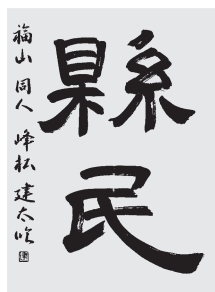 縣民
福山 同人 峰松 建太